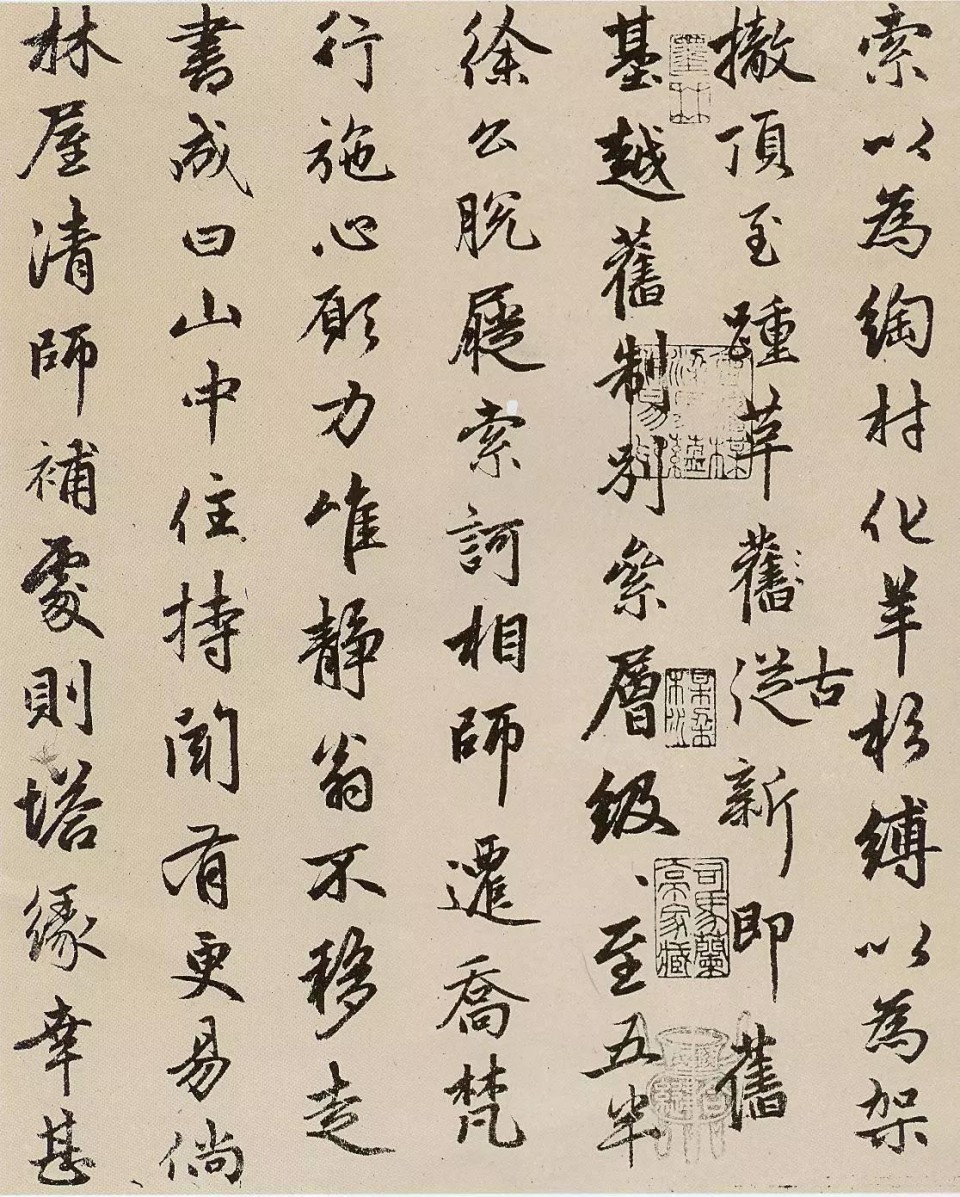 索以為綯村化羊杉縛以為架
撤頂至踵革舊從古新即舊
基越舊制別叅層級、至五半
徐公脫屣索訶相師遷喬梵
行施心願力唯靜翁不移走
書成曰山中住持閒有更易倘
林屋清師補處則塔緣幸甚
墨林
司馬蘭亭家藏